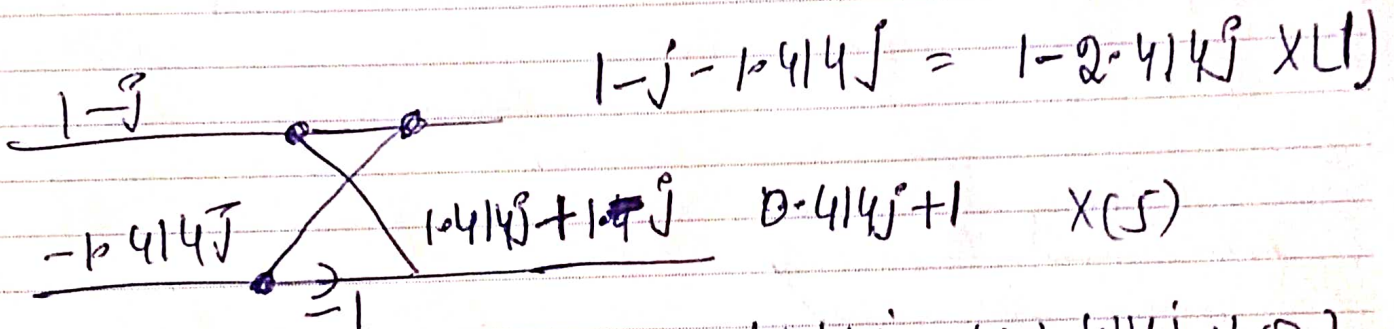 1-j-1.414j = 1-2.414j X(1)
1-j
-1.414j 1.414j+1-j 0.414j+1 X(5)
-1